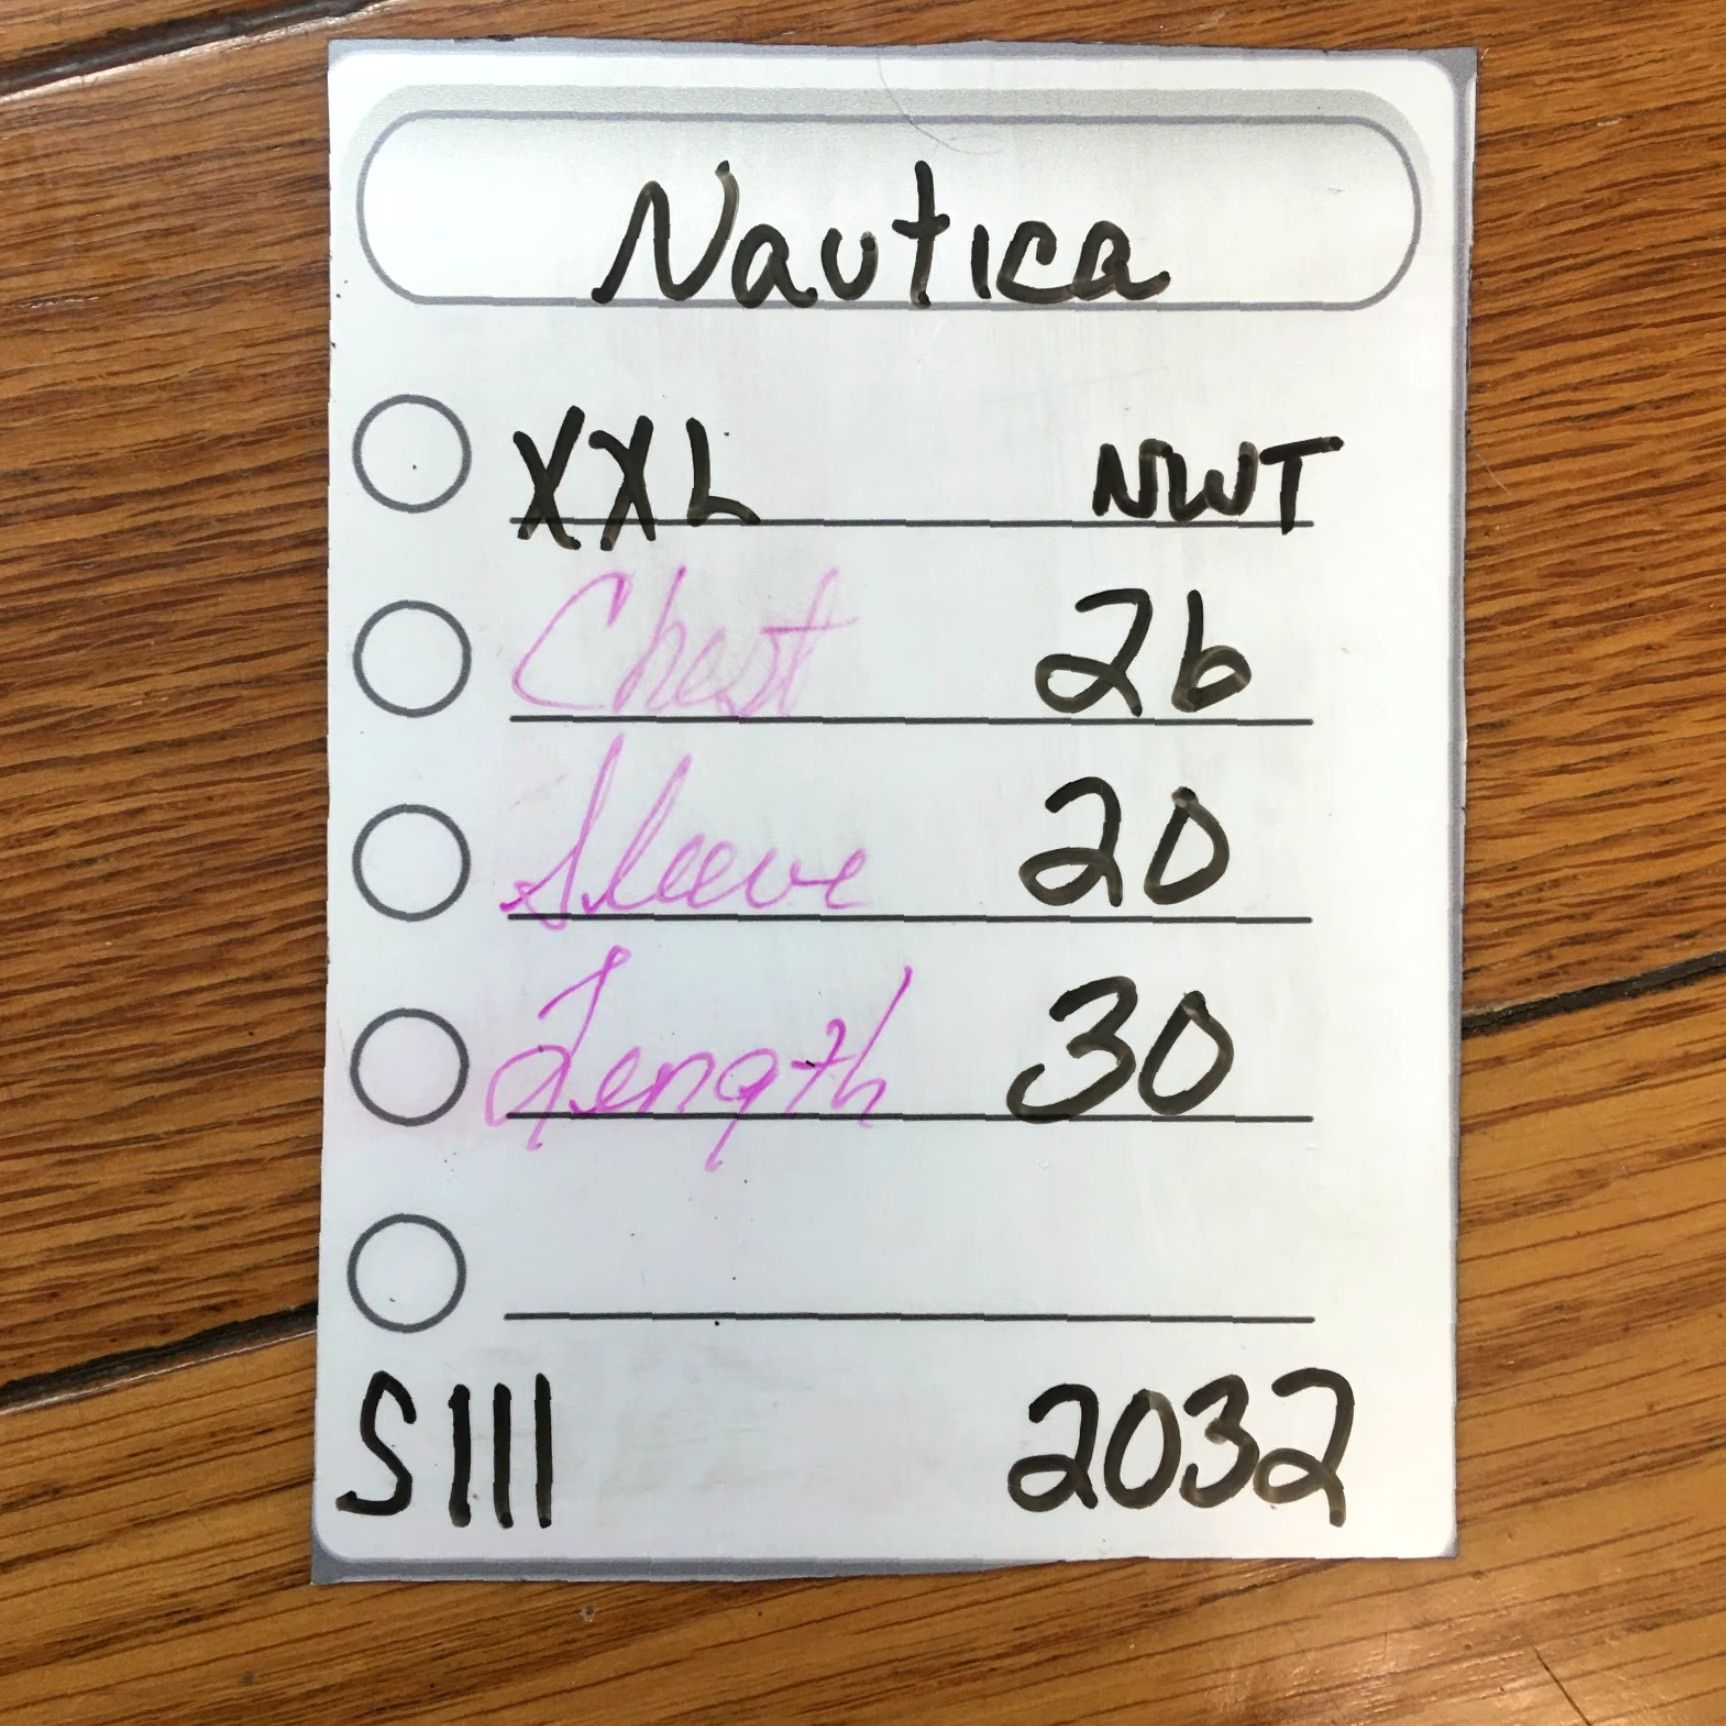 Nautica
XXL NWT
Chest 26
Sleeve 20
Length 30
S111 2032